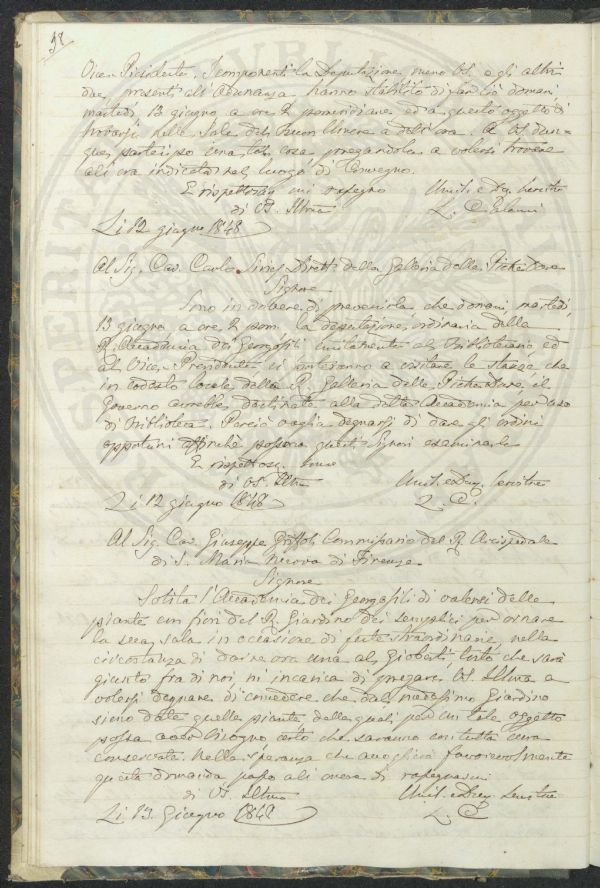 38
Vice-Presidente. I componenti la Deputazione meno VS. e gli altri
due presenti all'Adunanza hanno stabilito di far ciò domani
martedì 13 giugno a ore 2 pomeridiane ed a questo oggetto di
trovarsi nelle Sale del Buon Umore a dett'ora. A VS. dun-
que partecipo una tal cosa pregandola a volersi trovare
all'ora indicata nel luogo di Convegno.
E rispettosam mi rassegno
di VS. Illma
Umil. e Dev. Servitre
L. C.
Li 12 giugno 1848
Al Sig. Cav. Carlo Dirett. della Galleria delle Pietre Dure
Signore
Sono in dovere di prevenirla che domani martedì,
13 giugno a ore 2 pom. la deputazione ordinaria della
R. Accademia dei Georgofili unitamente al Bibliotecario ed
al Vice-Presidente si porteranno a visitare le stanze che
in codesto locale della R. Galleria delle Pietre Dure il
Governo avrebbe destinate alla detta Accademia per uso
di Biblioteca. Perciò voglia degnarsi di dare gli ordini
opportuni affinché possano questi Signori esaminarle
E rispettosam.
di VS. Illma
Umil. e Dev. Servitre
L. C.
Li 12 giugno 1848
Al Sig. Cav. Giuseppe Commissario del R. Arcispedale
di S. Maria Nuova di Firenze
Signore
Solita l'Accademia dei Georgofili di valersi delle
piante con fiori del R. Giardino dei semplici per ornare
la sua sala in occasione di feste straordinarie, nella
circostanza di darne ora una al Gioberti, tosto che sarà
giunto fra di noi, mi incarica di pregare VS. Illma a
volersi degnare di concedere che dal medesimo Giardino
sieno date quelle piante delle quali per un tale oggetto
possa aver bisogno certo che saranno con tutta cura
conservate. Nella speranza che accoglierà favorevolmente
questa domanda passo all'onore di rassegnarmi
di VS. Illma
Umil. e Dev. Servitre
L. C.
Li 13. Giugno 1848